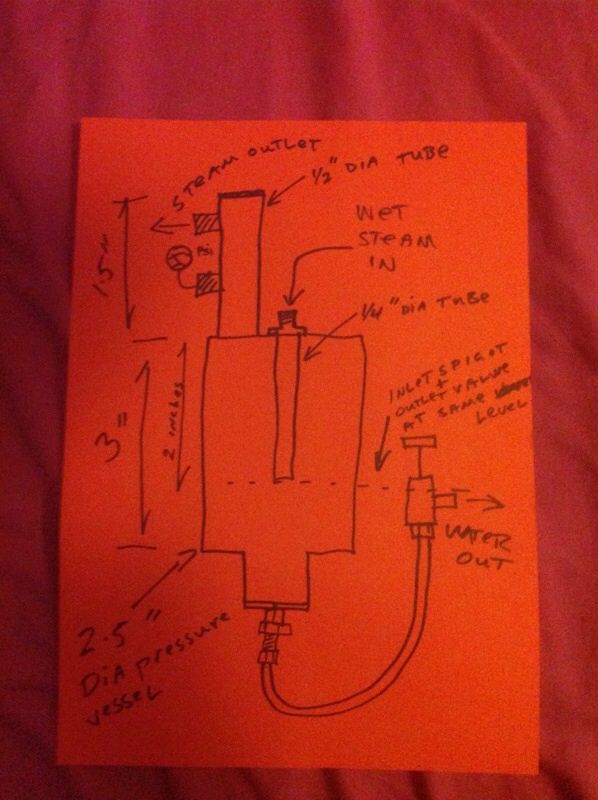 STEAM OUTLET
1/2" DIA TUBE
WET
STEAM
IN
PSI
1/4" DIA TUBE
INLET SPIGOT
+
OUTLET VALVE
AT SAME
LEVEL
3"
2 inches
WATER
OUT
2.5"
DIA pressure
vessel